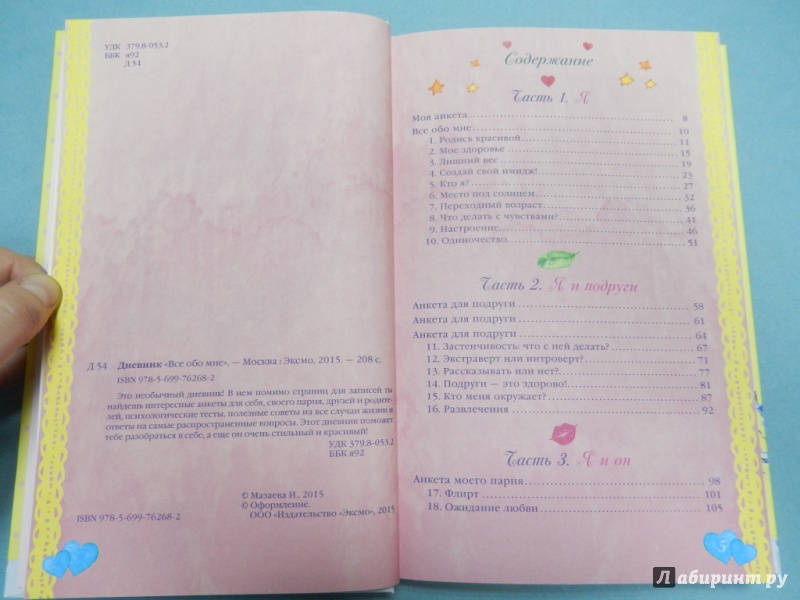 УДК 379.8-053.2
ББК я92
Д 54
Д 54 Дневник «Все обо мне». — Москва : Эксмо, 2015. — 208 с.
ISBN 978-5-699-76268-2
Это необычный дневник! В нем помимо страниц для записей ты
найдешь интересные анкеты для себя, своего парня, друзей и родите-
лей, психологические тесты, полезные советы на все случаи жизни и
ответы на самые распространенные вопросы. Этот дневник поможет
тебе разобраться в себе, а еще он очень стильный и красивый!
УДК 379.8-053.2
ББК я92
© Мазаева И., 2015
© Оформление.
ООО «Издательство «Эксмо», 2015
ISBN 978-5-699-76268-2
Содержание
Часть 1. Я
Моя анкета 8
Все обо мне 10
1. Родись красивой 11
2. Мое здоровье 15
3. Лишний вес 19
4. Создай свой имидж! 23
5. Кто я? 27
6. Место под солнцем 32
7. Переходный возраст 36
8. Что делать с чувствами? 41
9. Настроение 46
10. Одиночество 51
Часть 2. Я и подруги
Анкета для подруги 58
Анкета для подруги 61
Анкета для подруги 64
11. Застенчивость: что с ней делать? 67
12. Экстраверт или интроверт? 71
13. Рассказывать или нет? 77
14. Подруги — это здорово! 81
15. Кто меня окружает? 87
16. Развлечения 92
Часть 3. Я и он
Анкета моего парня 98
17. Флирт 101
18. Ожидание любви 105
5
Лабиринт.ру